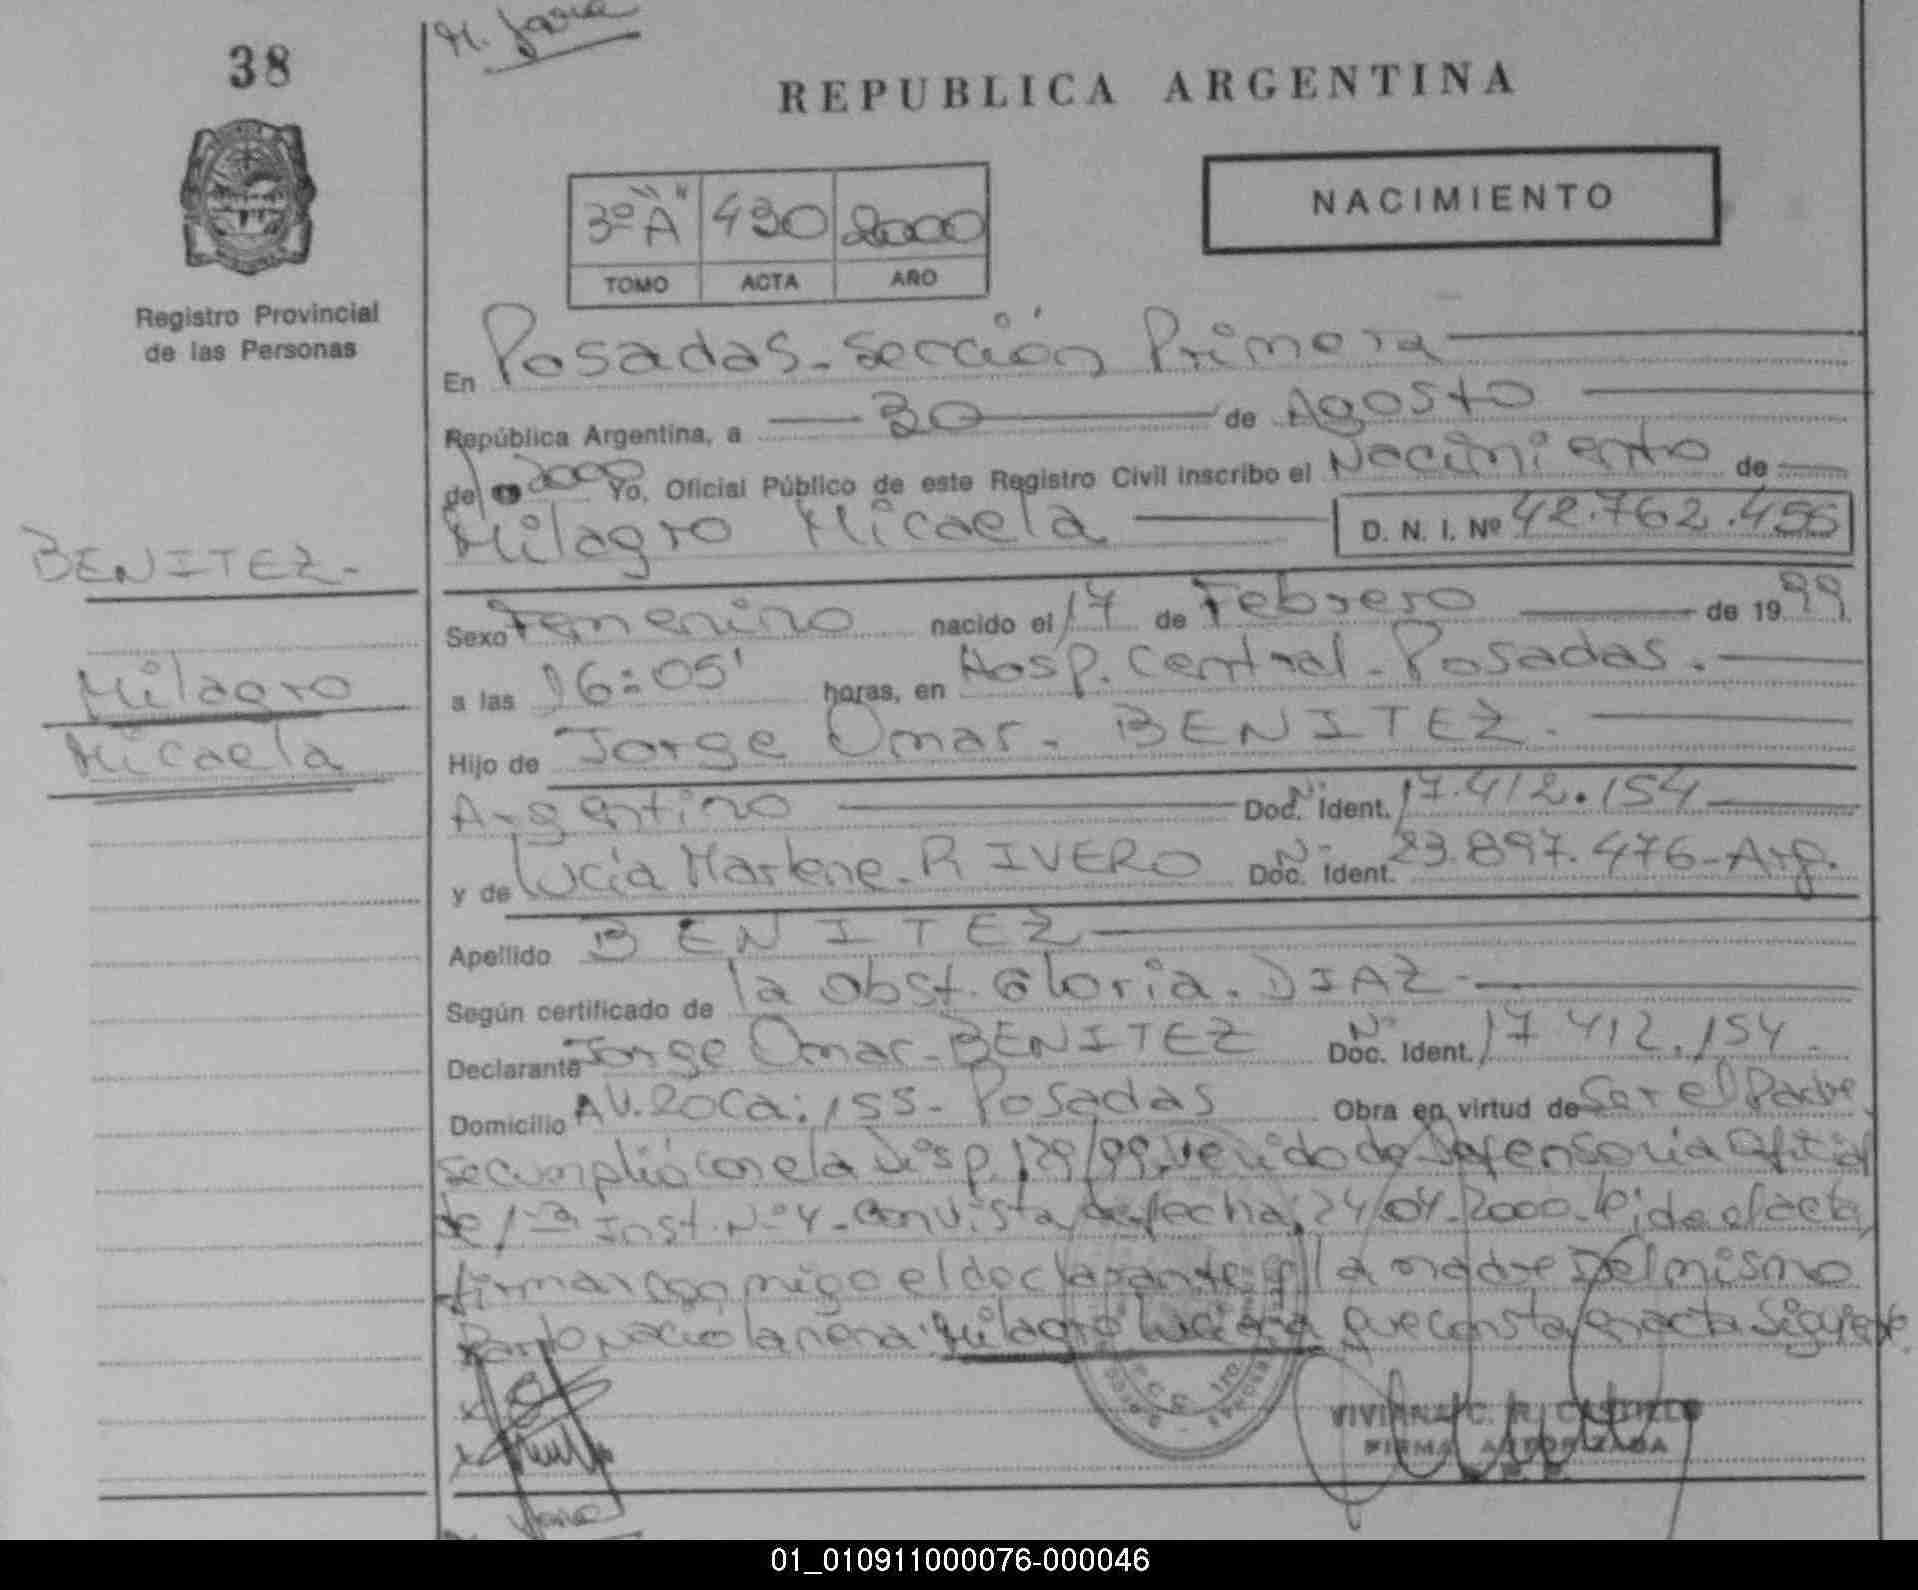 38
REPUBLICA ARGENTINA
NACIMIENTO
3º "A" 430 2000
TOMO ACTA AÑO
Registro Provincial
de las Personas
En Posadas - Sección Primera
República Argentina, a 30 de Agosto
del 2000 Yo, Oficial Público de este Registro Civil inscribo el Nacimiento de
Milagro Micaela D. N. I. Nº 42.762.455
BENITEZ -
Milagro
Micaela
Sexo Femenino nacido el 17 de Febrero de 1999
a las 16:05' horas, en Hosp. Central - Posadas.
Hijo de Jorge Omar - BENITEZ.
Argentino Doc. Nº Ident. 17.412.154
y de Lucía Marlene - RIVERO Doc. Nº Ident. 23.897.476 - Arg.
Apellido BENITEZ
Según certificado de la obst. Gloria. DIAZ -
Declarante Jorge Omar - BENITEZ Nº Doc. Ident. 17 412.154.
Domicilio AV. Roca: 155 - Posadas Obra en virtud de Ser el Padre.
se cumplió con la Disp. 129/99, de Defensoria Oficial
de 1ra Inst. Nº 4 - Con vista de fecha, 24/04-2000 - el acta,
firman conmigo el declarante y la madre Del mismo
Parto nació la nena: Milagro Luciana que consta en acta Siguiente.
VIVIANA C. R. CASTILLO
FIRMA AUTORIZADA
01_010911000076-000046